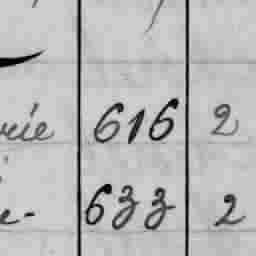 616 2
633 2